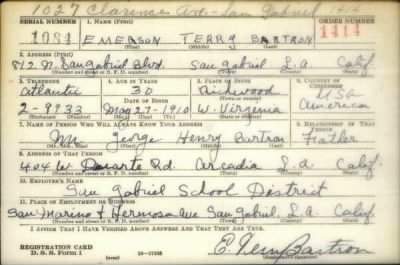 1027 Clarence Ave. San Gabriel 414
SERIAL NUMBER 1. NAME (Print) ORDER NUMBER
1084 EMERSON TERRY BARTRON 1414
(First) (Middle) (Last)
2. ADDRESS (Print)
812 N. San Gabriel Blvd. San Gabriel L.A. Calif.
(Number and street or R. F. D. number) (Town) (County) (State)
3. TELEPHONE 4. AGE IN YEARS 5. PLACE OF BIRTH 6. COUNTRY OF CITIZENSHIP
Atlantic 30 Richwood USA
DATE OF BIRTH (Town or county)
2-9733 May 27-1910 W. Virginia America
(Exchange) (Number) (Mo.) (Day) (Yr.) (State or country)
7. NAME OF PERSON WHO WILL ALWAYS KNOW YOUR ADDRESS 8. RELATIONSHIP OF THAT PERSON
Mr. George Henry Bartron Father
(Mr., Mrs., Miss) (First) (Middle) (Last)
9. ADDRESS OF THAT PERSON
404 W. Duarte Rd. Arcadia L.A. Calif.
(Number and street or R. F. D. number) (Town) (County) (State)
10. EMPLOYER'S NAME
San Gabriel School District
11. PLACE OF EMPLOYMENT OR BUSINESS
San Marino & Hermosa Ave San Gabriel, L.A. Calif.
(Number and street or R. F. D. number) (Town) (County) (State)
I AFFIRM THAT I HAVE VERIFIED ABOVE ANSWERS AND THAT THEY ARE TRUE.
REGISTRATION CARD
D. S. S. Form 1 (over) E. Terry Bartron
(Registrant's signature)